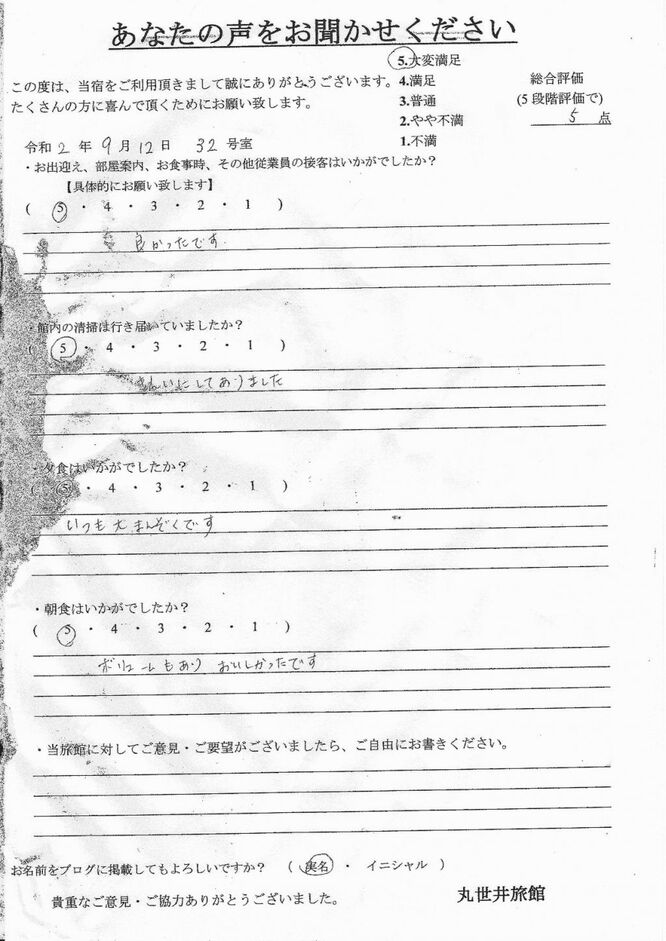 あなたの声をお聞かせください
この度は、当宿をご利用頂きまして誠にありがとうございます。
たくさんの方に喜んで頂くためにお願い致します。
5.大変満足
4.満足
3.普通
2.やや不満
1.不満
総合評価
(5段階評価で)
5 点
令和 2 年 9月 12日 32 号室
・お出迎え、部屋案内、お食事時、その他従業員の接客はいかがでしたか?
【具体的にお願い致します】
( 5 ・ 4 ・ 3 ・ 2 ・ 1 )
良かったです.
・館内の清掃は行き届いていましたか?
( 5 ・ 4 ・ 3 ・ 2 ・ 1 )
きれいにしてありました
・夕食はいかがでしたか?
( 5 ・ 4 ・ 3 ・ 2 ・ 1 )
いつも大まんぞくです
・朝食はいかがでしたか?
( 5 ・ 4 ・ 3 ・ 2 ・ 1 )
ボリュームもあり おいしかったです
・当旅館に対してご意見・ご要望がございましたら、ご自由にお書きください。
お名前をブログに掲載してもよろしいですか? ( 実名 ・ イニシャル )
貴重なご意見・ご協力ありがとうございました。
丸世井旅館